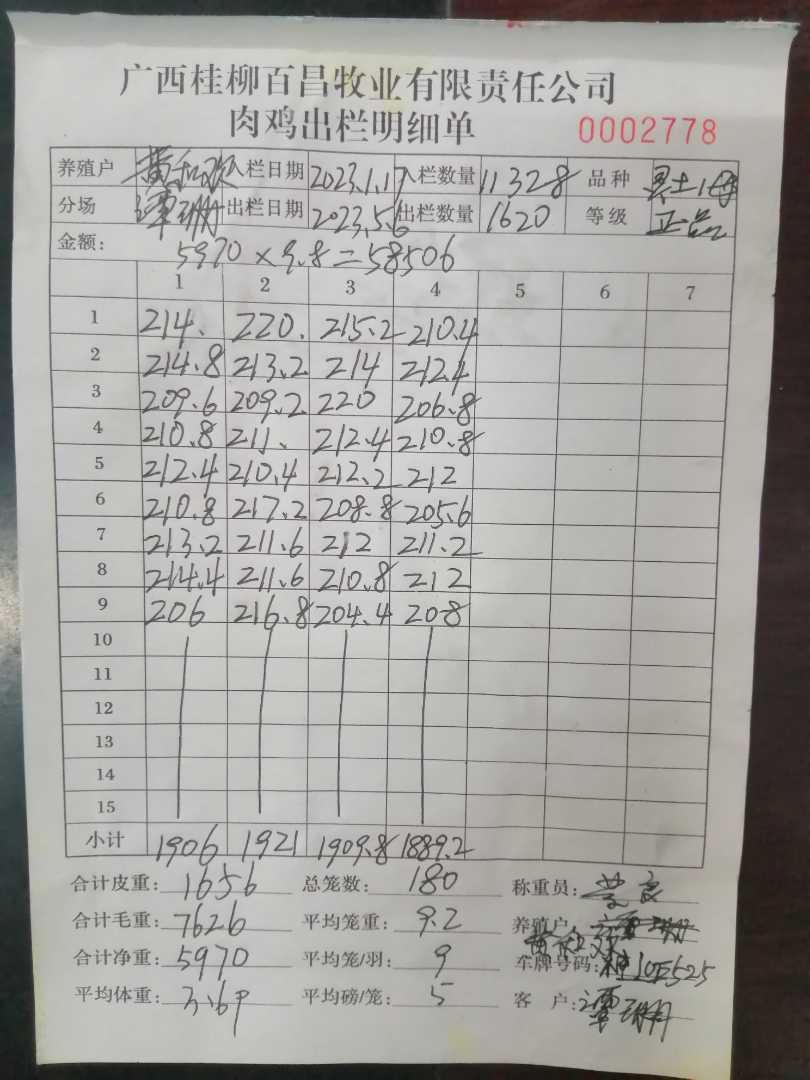 广西桂柳百昌牧业有限责任公司
肉鸡出栏明细单 0002778
养殖户 入栏日期 2023.1.17 入栏数量 11328 品种
分场 谭珊 出栏日期 2023.5.6 出栏数量 1620 等级 正品
金额: 5970×9.8=58506
1 2 3 4 5 6 7
1 214. 220. 215.2 210.4
2 214.8 213.2 214 212.4
3 209.6 209.2 220 206.8
4 210.8 211. 212.4 210.8
5 212.4 210.4 212.2 212
6 210.8 217.2 208.8 205.6
7 213.2 211.6 212 211.2
8 214.4 211.6 210.8 212
9 206 216.8 204.4 208
10
11
12
13
14
15
小计 1906 1921 1909.8 1889.2
合计皮重: 1656 总笼数: 180 称重员:
合计毛重: 7626 平均笼重: 9.2 养殖户:
合计净重: 5970 平均笼/羽: 9 车牌号码:
平均体重: 3.69 平均磅/笼: 5 客户: 谭珊